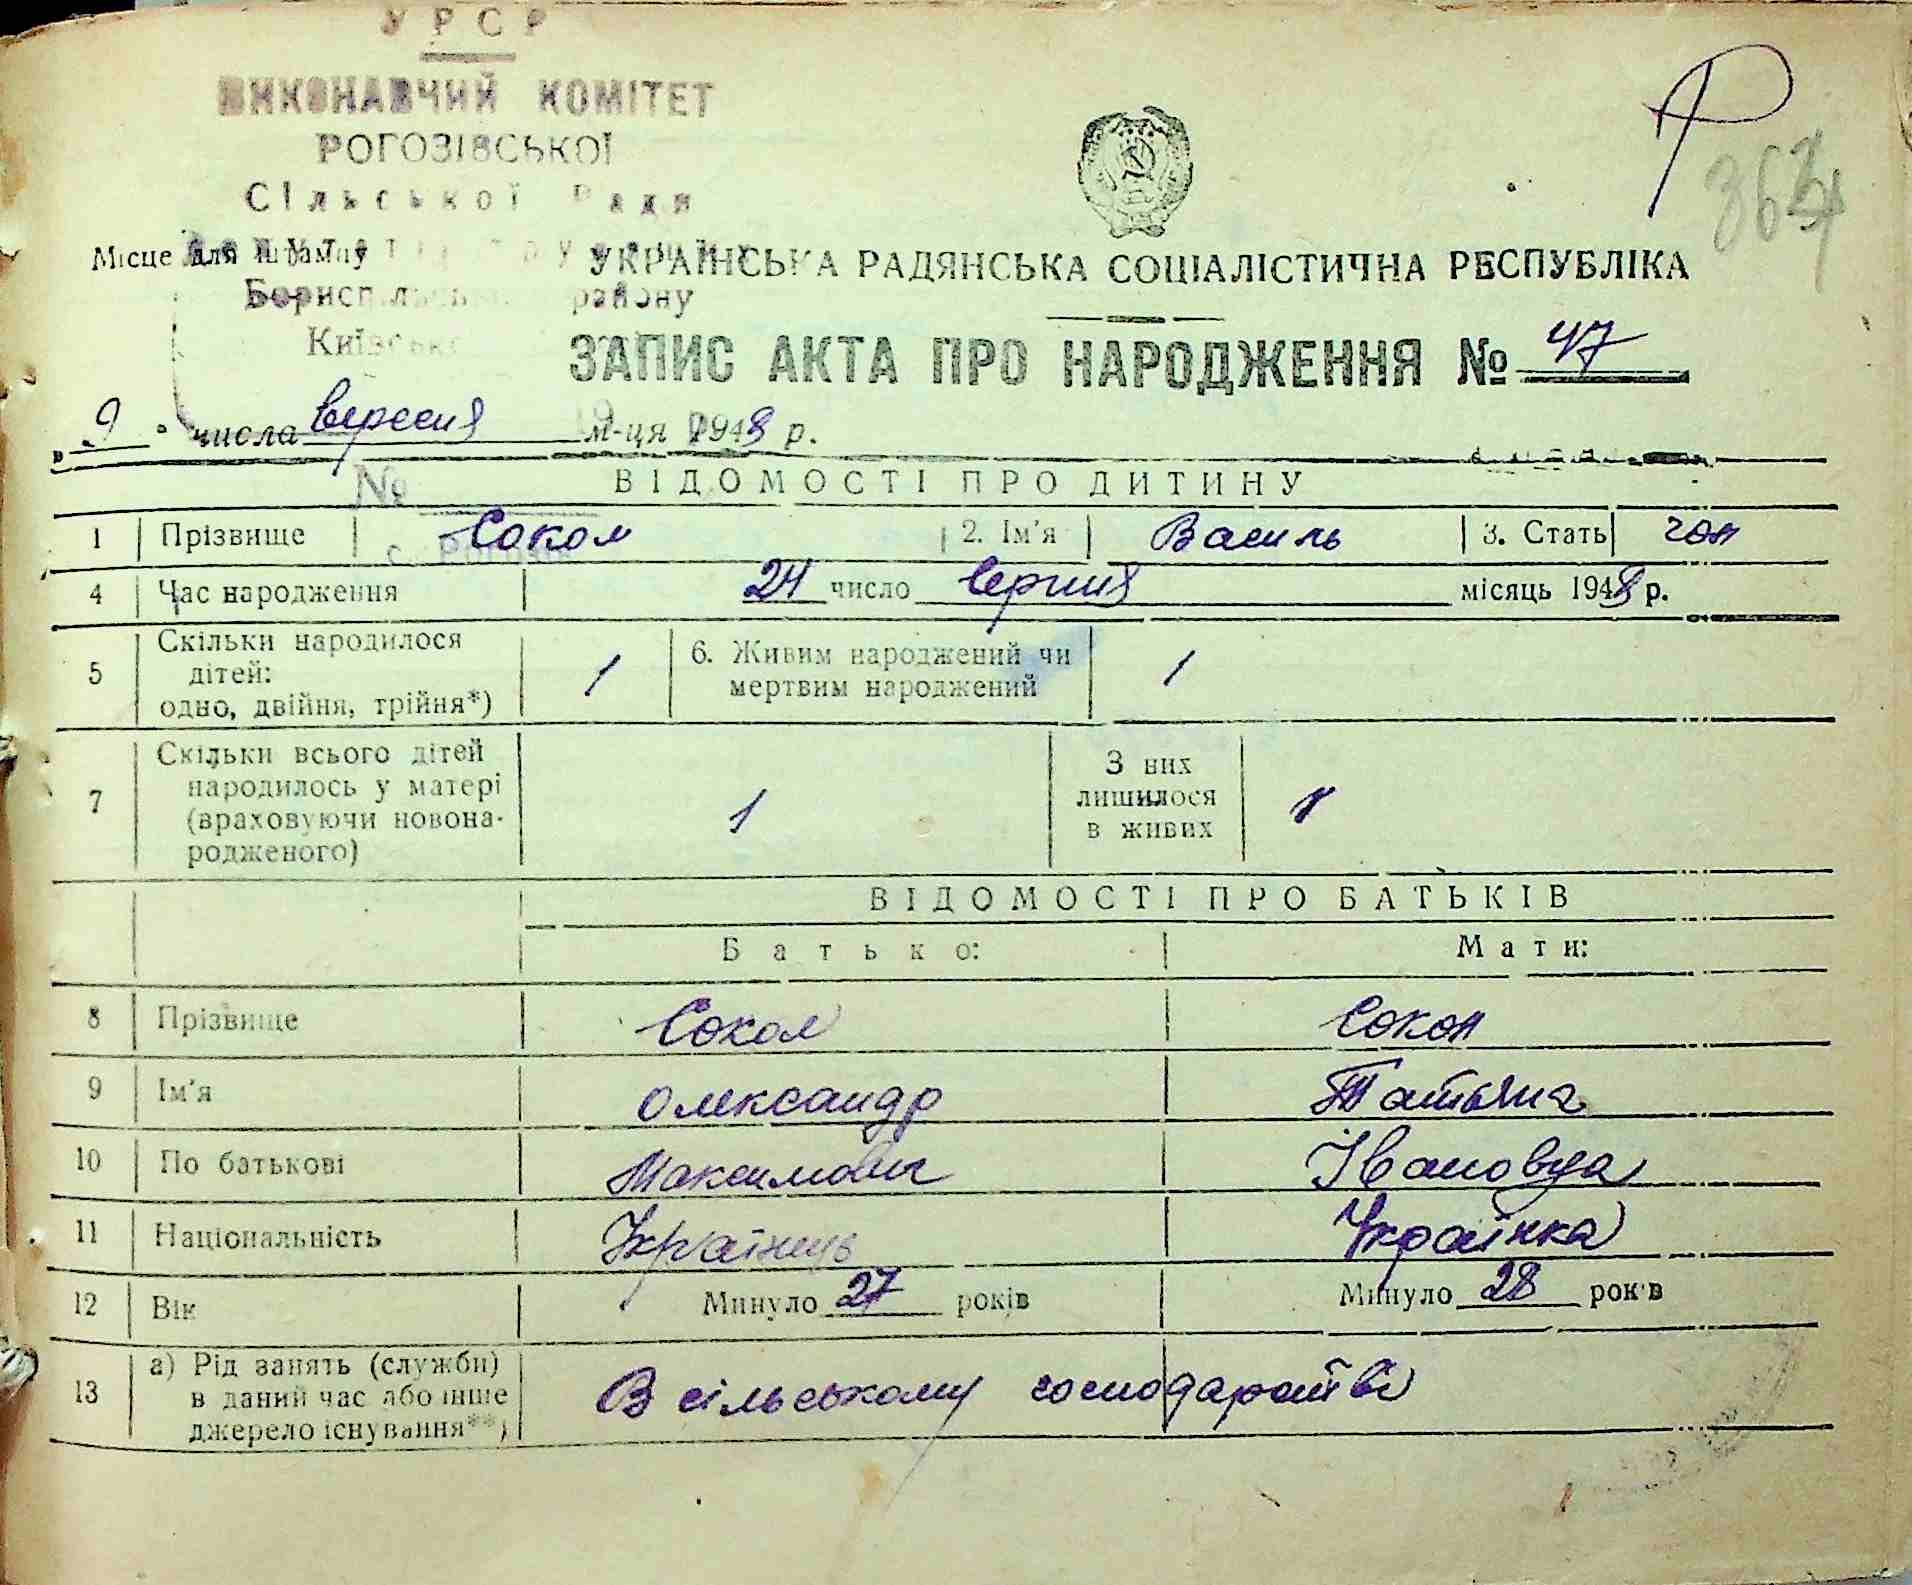 УРСР
ВИКОНАВЧИЙ КОМІТЕТ
РОГОЗІВСЬКОЇ
Сільської Ради
Місце для штампу
УКРАЇНСЬКА РАДЯНСЬКА СОЦІАЛІСТИЧНА РЕСПУБЛІКА
району
ЗАПИС АКТА ПРО НАРОДЖЕННЯ № 47
9 числа вересня м-ця 1948 р.
№
ВІДОМОСТІ ПРО ДИТИНУ
1 Прізвище Сокол 2. Ім'я Василь 3. Стать чол
4 Час народження 24 число серпня місяць 1948 р.
5 Скільки народилося дітей: одно, двійня, трійня*) 1 6. Живим народжений чи мертвим народжений 1
7 Скільки всього дітей народилось у матері (враховуючи новонародженого) 1 З них лишилося в живих 1
ВІДОМОСТІ ПРО БАТЬКІВ
Батько: Мати:
8 Прізвище Сокол Сокол
9 Ім'я Олександр Татьяна
10 По батькові Максимович Івановна
11 Національність Українець Українка
12 Вік Минуло 27 років Минуло 28 років
13 а) Рід занять (служби) в даний час або інше джерело існування**) В сільському господарстві